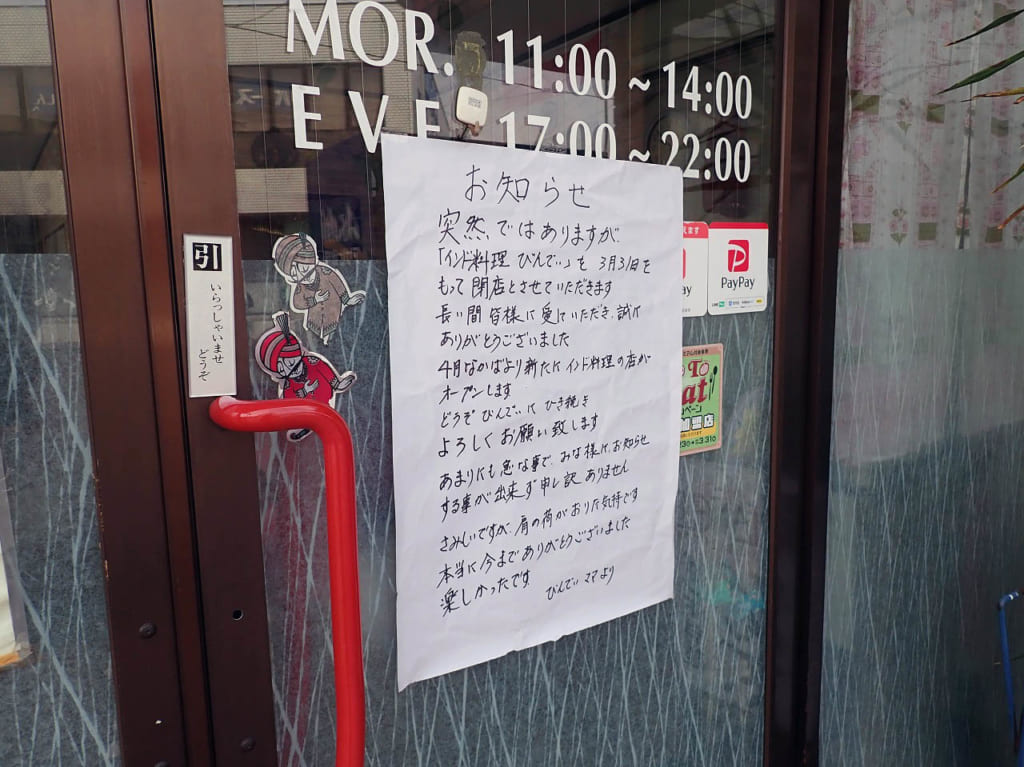 MOR. 11:00~14:00
EVE 17:00~22:00
お知らせ
突然、ではありますが、
「インド料理 びんでぃ」を 3月31日を
もって閉店とさせていただきます
長い間 皆様に愛していただき、誠に
ありがとうございました
4月なかばより新たにインド料理の店が
オープンします
どうぞ びんでぃに ひき続き
よろしくお願い致します
あまりにも急な事で、みな様に、お知らせ
する事が出来ず申し訳ありません
さみしいですが、肩の荷がおりた気持です
本当に今までありがとうございました
楽しかったです
びんでぃ ママより
引
いらっしゃいませ
どうぞ
PayPay
加盟店